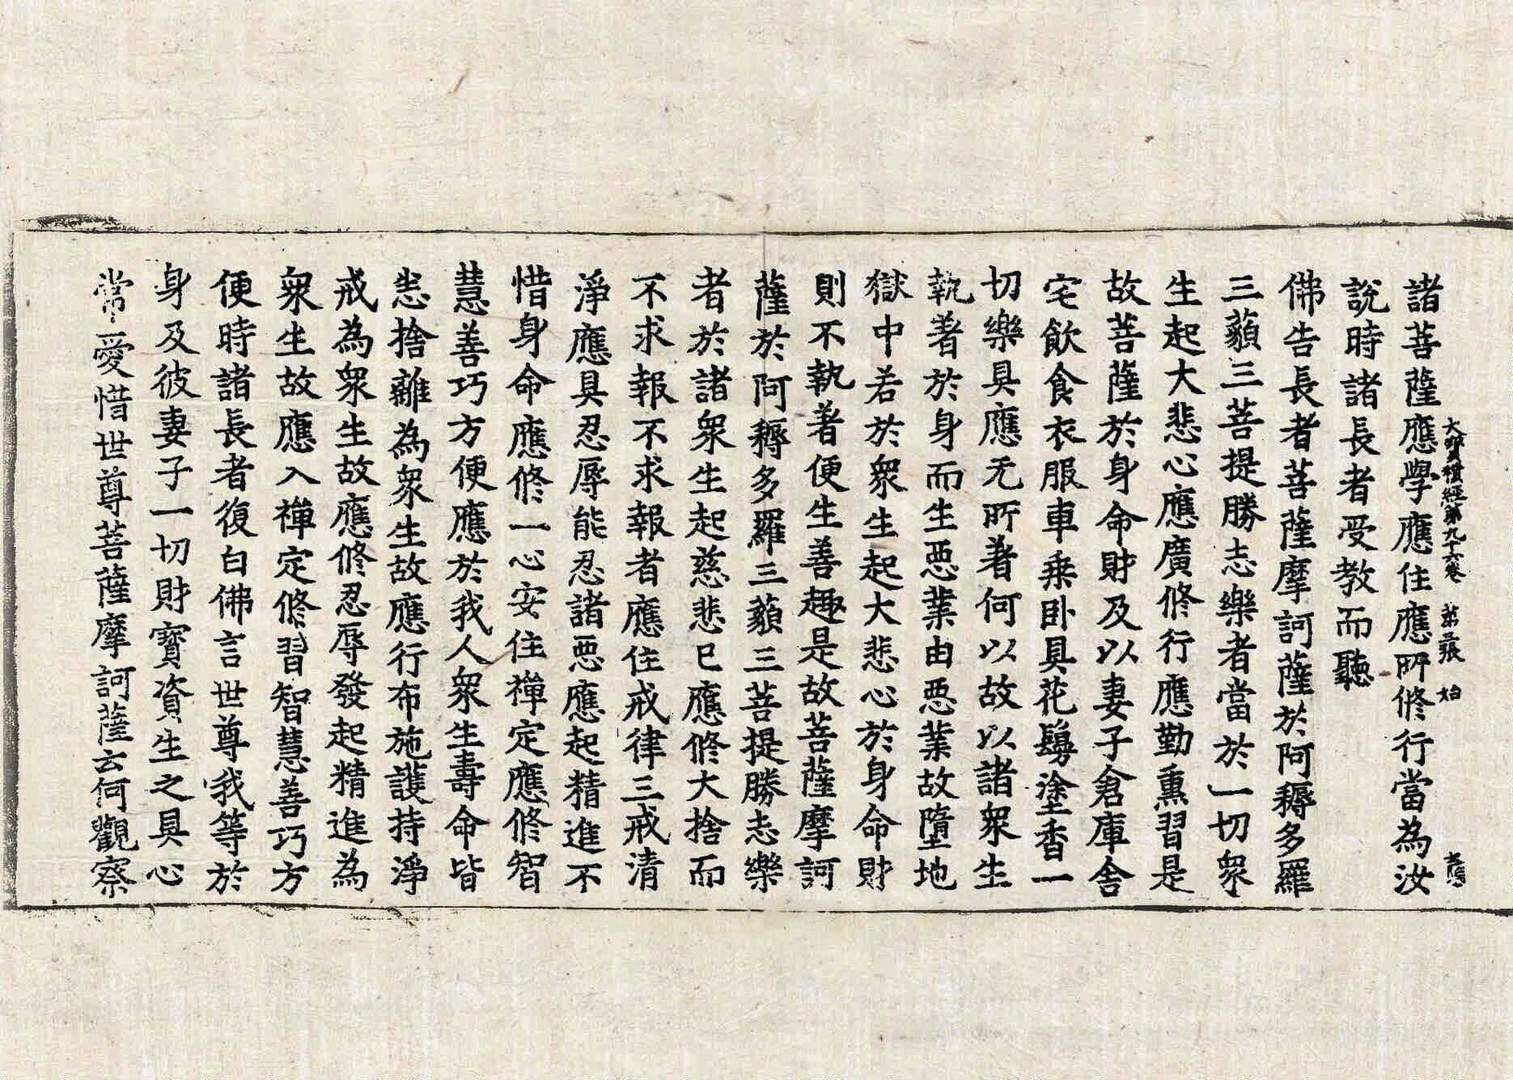 諸菩薩應學應住應所修行當為汝
說時諸長者受教而聽
佛告長者菩薩摩訶薩於阿耨多羅
三藐三菩提勝志樂者當於一切衆
生起大悲心應廣修行應勤熏習是
故菩薩於身命財及以妻子倉庫舍
宅飲食衣服車乗卧具花鬘塗香一
切樂具應无所著何以故以諸衆生
執著於身而生惡業由惡業故墮地
獄中若於衆生起大悲心於身命財
則不執著便生善趣是故菩薩摩訶
薩於阿耨多羅三藐三菩提勝志樂
者於諸衆生起慈悲已應修大捨而
不求報不求報者應住戒律三戒清
淨應具忍辱能忍諸惡應起精進不
惜身命應修一心安住禪定應修智
慧善巧方便應於我人衆生壽命皆
悉捨離為衆生故應行布施護持淨
戒為衆生故應修忍辱發起精進為
衆生故應入禪定修習智慧善巧方
便時諸長者復白佛言世尊我等於
身及彼妻子一切財寶資生之具心
常愛惜世尊菩薩摩訶薩云何觀察
大寶積經第九十六卷 第三張 始